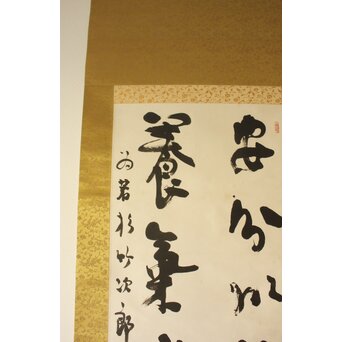 安分以
養氣
為若杉竹次郎